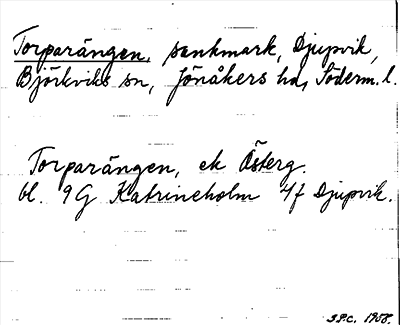 Torparängen, sankmark, Djupvik,
Björkviks sn, Jönåkers hd, Söderm. l.
Torparängen, ek Österg.
bl. 9G Katrineholm 4f Djupvik.
G.P.C. 1958.